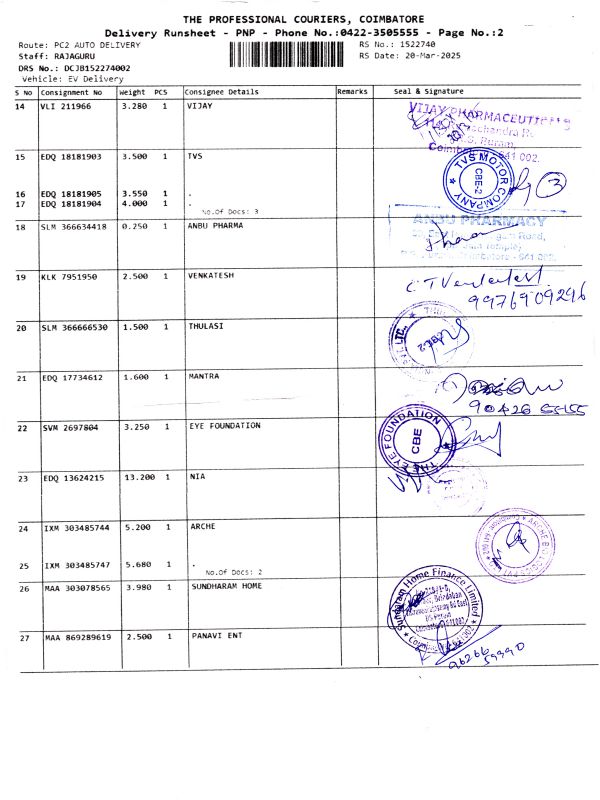 THE PROFESSIONAL COURIERS, COIMBATORE
Delivery Runsheet - PNP - Phone No.:0422-3505555 - Page No.:2
Route: PC2 AUTO DELIVERY RS No.: 1522740
Staff: RAJAGURU RS Date: 20-Mar-2025
DRS No.: DCJB152274002
Vehicle: EV Delivery
S No Consignment No Weight PCS Consignee Details Remarks Seal & Signature
14 VLI 211966 3.280 1 VIJAY
VIJAY PHARMACEUTICALS
15 EDQ 18181903 3.500 1 TVS
TVS MOTOR COMPANY CBE-2
3
16 EDQ 18181905 3.550 1 .
17 EDQ 18181904 4.000 1 .
No.Of Docs: 3
18 SLM 366634418 0.250 1 ANBU PHARMA
ANBU PHARMACY
19 KLK 7951950 2.500 1 VENKATESH
9976909296
20 SLM 366666530 1.500 1 THULASI
21 EDQ 17734612 1.600 1 MANTRA
90426 55155
22 SVM 2697804 3.250 1 EYE FOUNDATION
THE EYE FOUNDATION CBE
23 EDQ 13624215 13.200 1 NIA
24 IXM 303485744 5.200 1 ARCHE
25 IXM 303485747 5.680 1 .
No.Of Docs: 2
26 MAA 303078565 3.980 1 SUNDHARAM HOME
Sundaram Home Finance Limited
27 MAA 869289619 2.500 1 PANAVI ENT
96266
59990